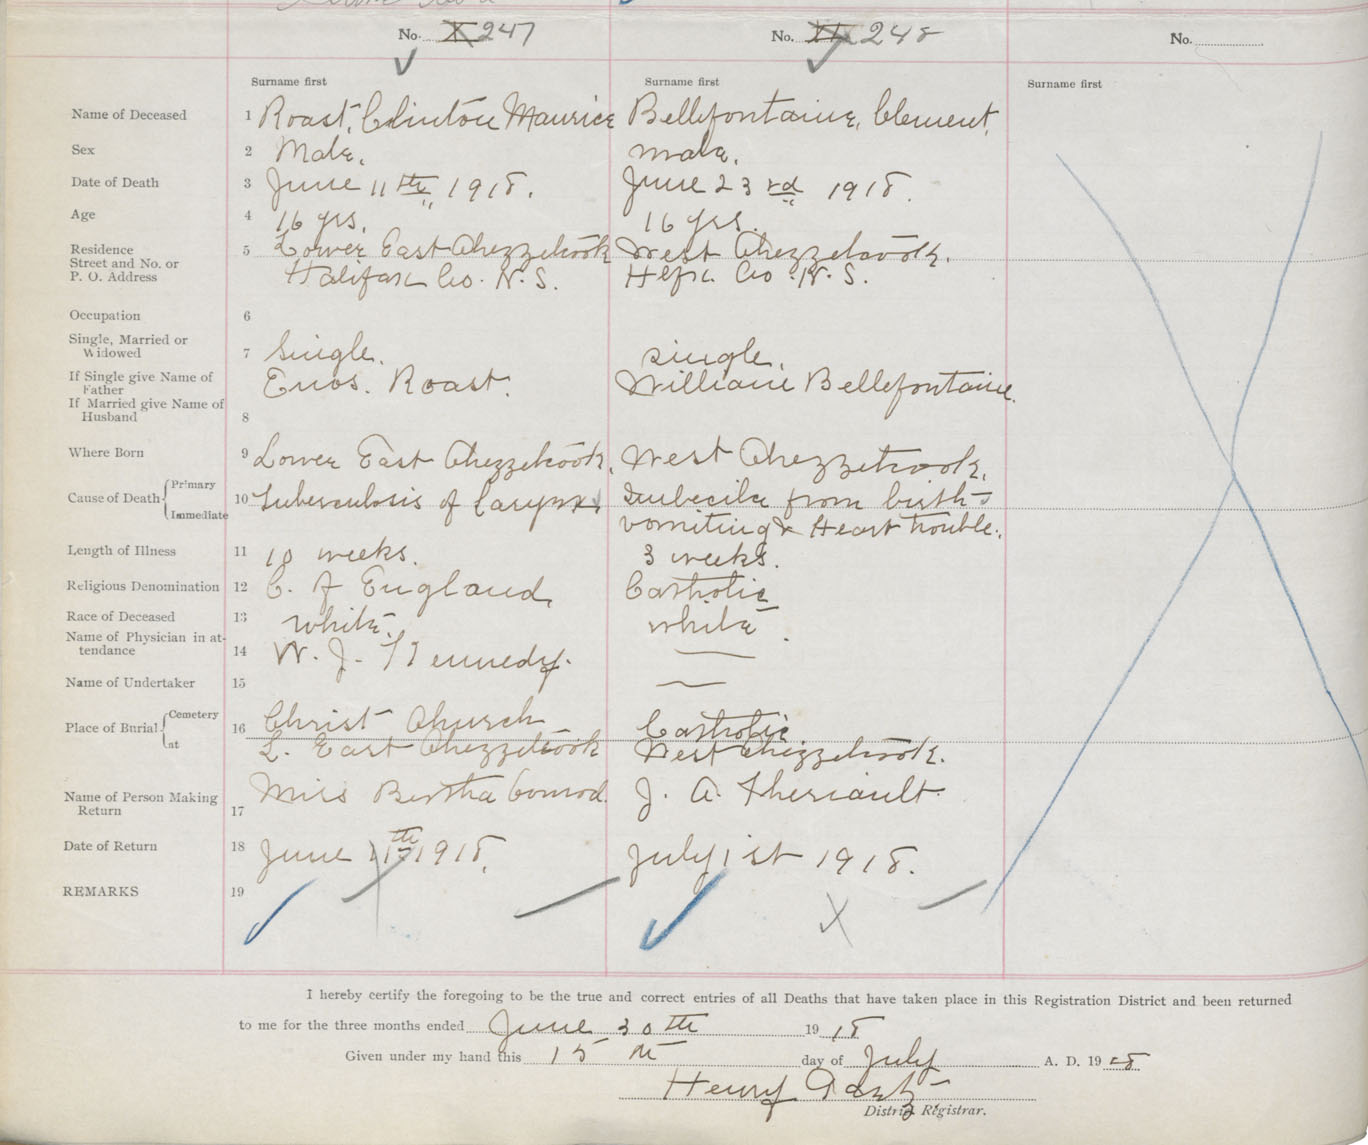 No. 247
No. 248
No.
Surname first
Surname first
Surname first
Name of Deceased 1 Roast, Clinton Maurice Bellefontaine, Clement.
Sex 2 Male. male.
Date of Death 3 June 11th, 1918. June 23rd 1918.
Age 4 16 yrs. 16 yrs.
Residence 5 Lower East Chezzetcook West Chezzetcook.
Street and No. or
P. O. Address Halifax Co. N. S. Hfx. Co. N. S.
Occupation 6
Single, Married or
Widowed 7 Single. single.
If Single give Name of
Father Enos. Roast. William Bellefontaine.
If Married give Name of
Husband 8
Where Born 9 Lower East Chezzetcook, West Chezzetcook.
Cause of Death Primary 10 Tuberculosis of Larynx Imbecile from birth
Immediate vomiting & Heart trouble.
Length of Illness 11 10 weeks. 3 weeks.
Religious Denomination 12 C. of England. Catholic
Race of Deceased 13 white. white.
Name of Physician in at-
tendance 14 W. J. Kennedy. —
Name of Undertaker 15 —
Place of Burial Cemetery 16 Christ Church Catholic
at L. East Chezzetcook West Chezzetcook.
Name of Person Making
Return 17 Miss Bertha Conrod. J. A. Theriault.
Date of Return 18 June 11th 1918. July 1st 1918.
REMARKS 19
I hereby certify the foregoing to be the true and correct entries of all Deaths that have taken place in this Registration District and been returned
to me for the three months ended June 30th 1918
Given under my hand this 15th day of July A. D. 1918
Henry
District Registrar.